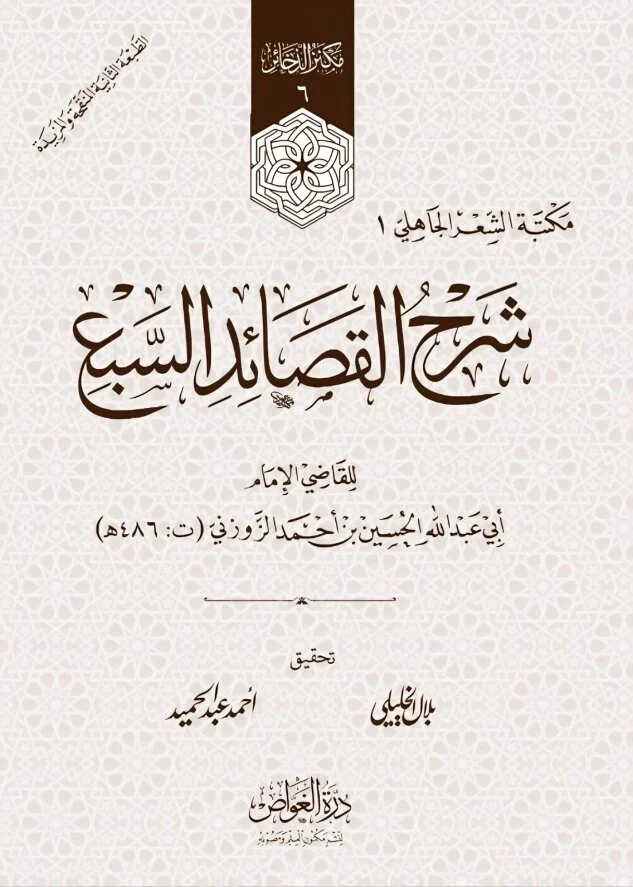 مكنز الذخائر
٦
الطبعة الثانية المنقحة والمزيدة
مكتبة الشعر الجاهلي ١
شَرْحُ القَصَائِدِ السَّبْعِ
للقاضي الإمام
أبي عبد الله الحسين بن أحمد الزوزني (ت: ٤٨٦هـ)
تحقيق
بلال الخليلي أحمد عبد الحميد
درة الغواص
لنشر مكنون العلم ومصونه